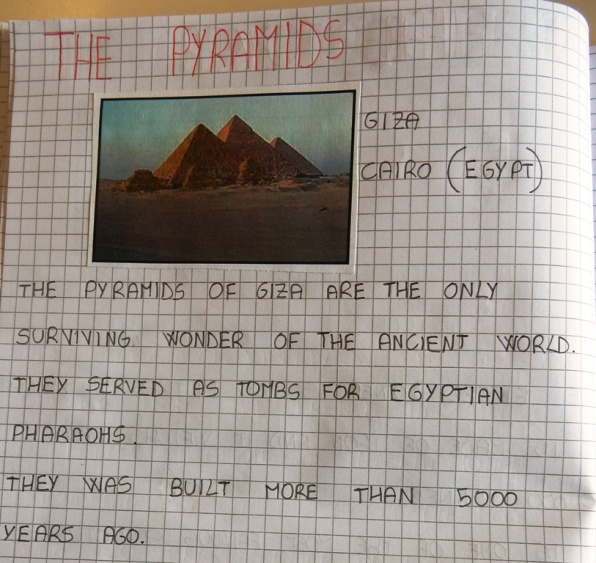 THE PYRAMIDS
GIZA
CAIRO (EGYPT)
THE PYRAMIDS OF GIZA ARE THE ONLY
SURVIVING WONDER OF THE ANCIENT WORLD.
THEY SERVED AS TOMBS FOR EGYPTIAN
PHARAOHS.
THEY WAS BUILT MORE THAN 5000
YEARS AGO.